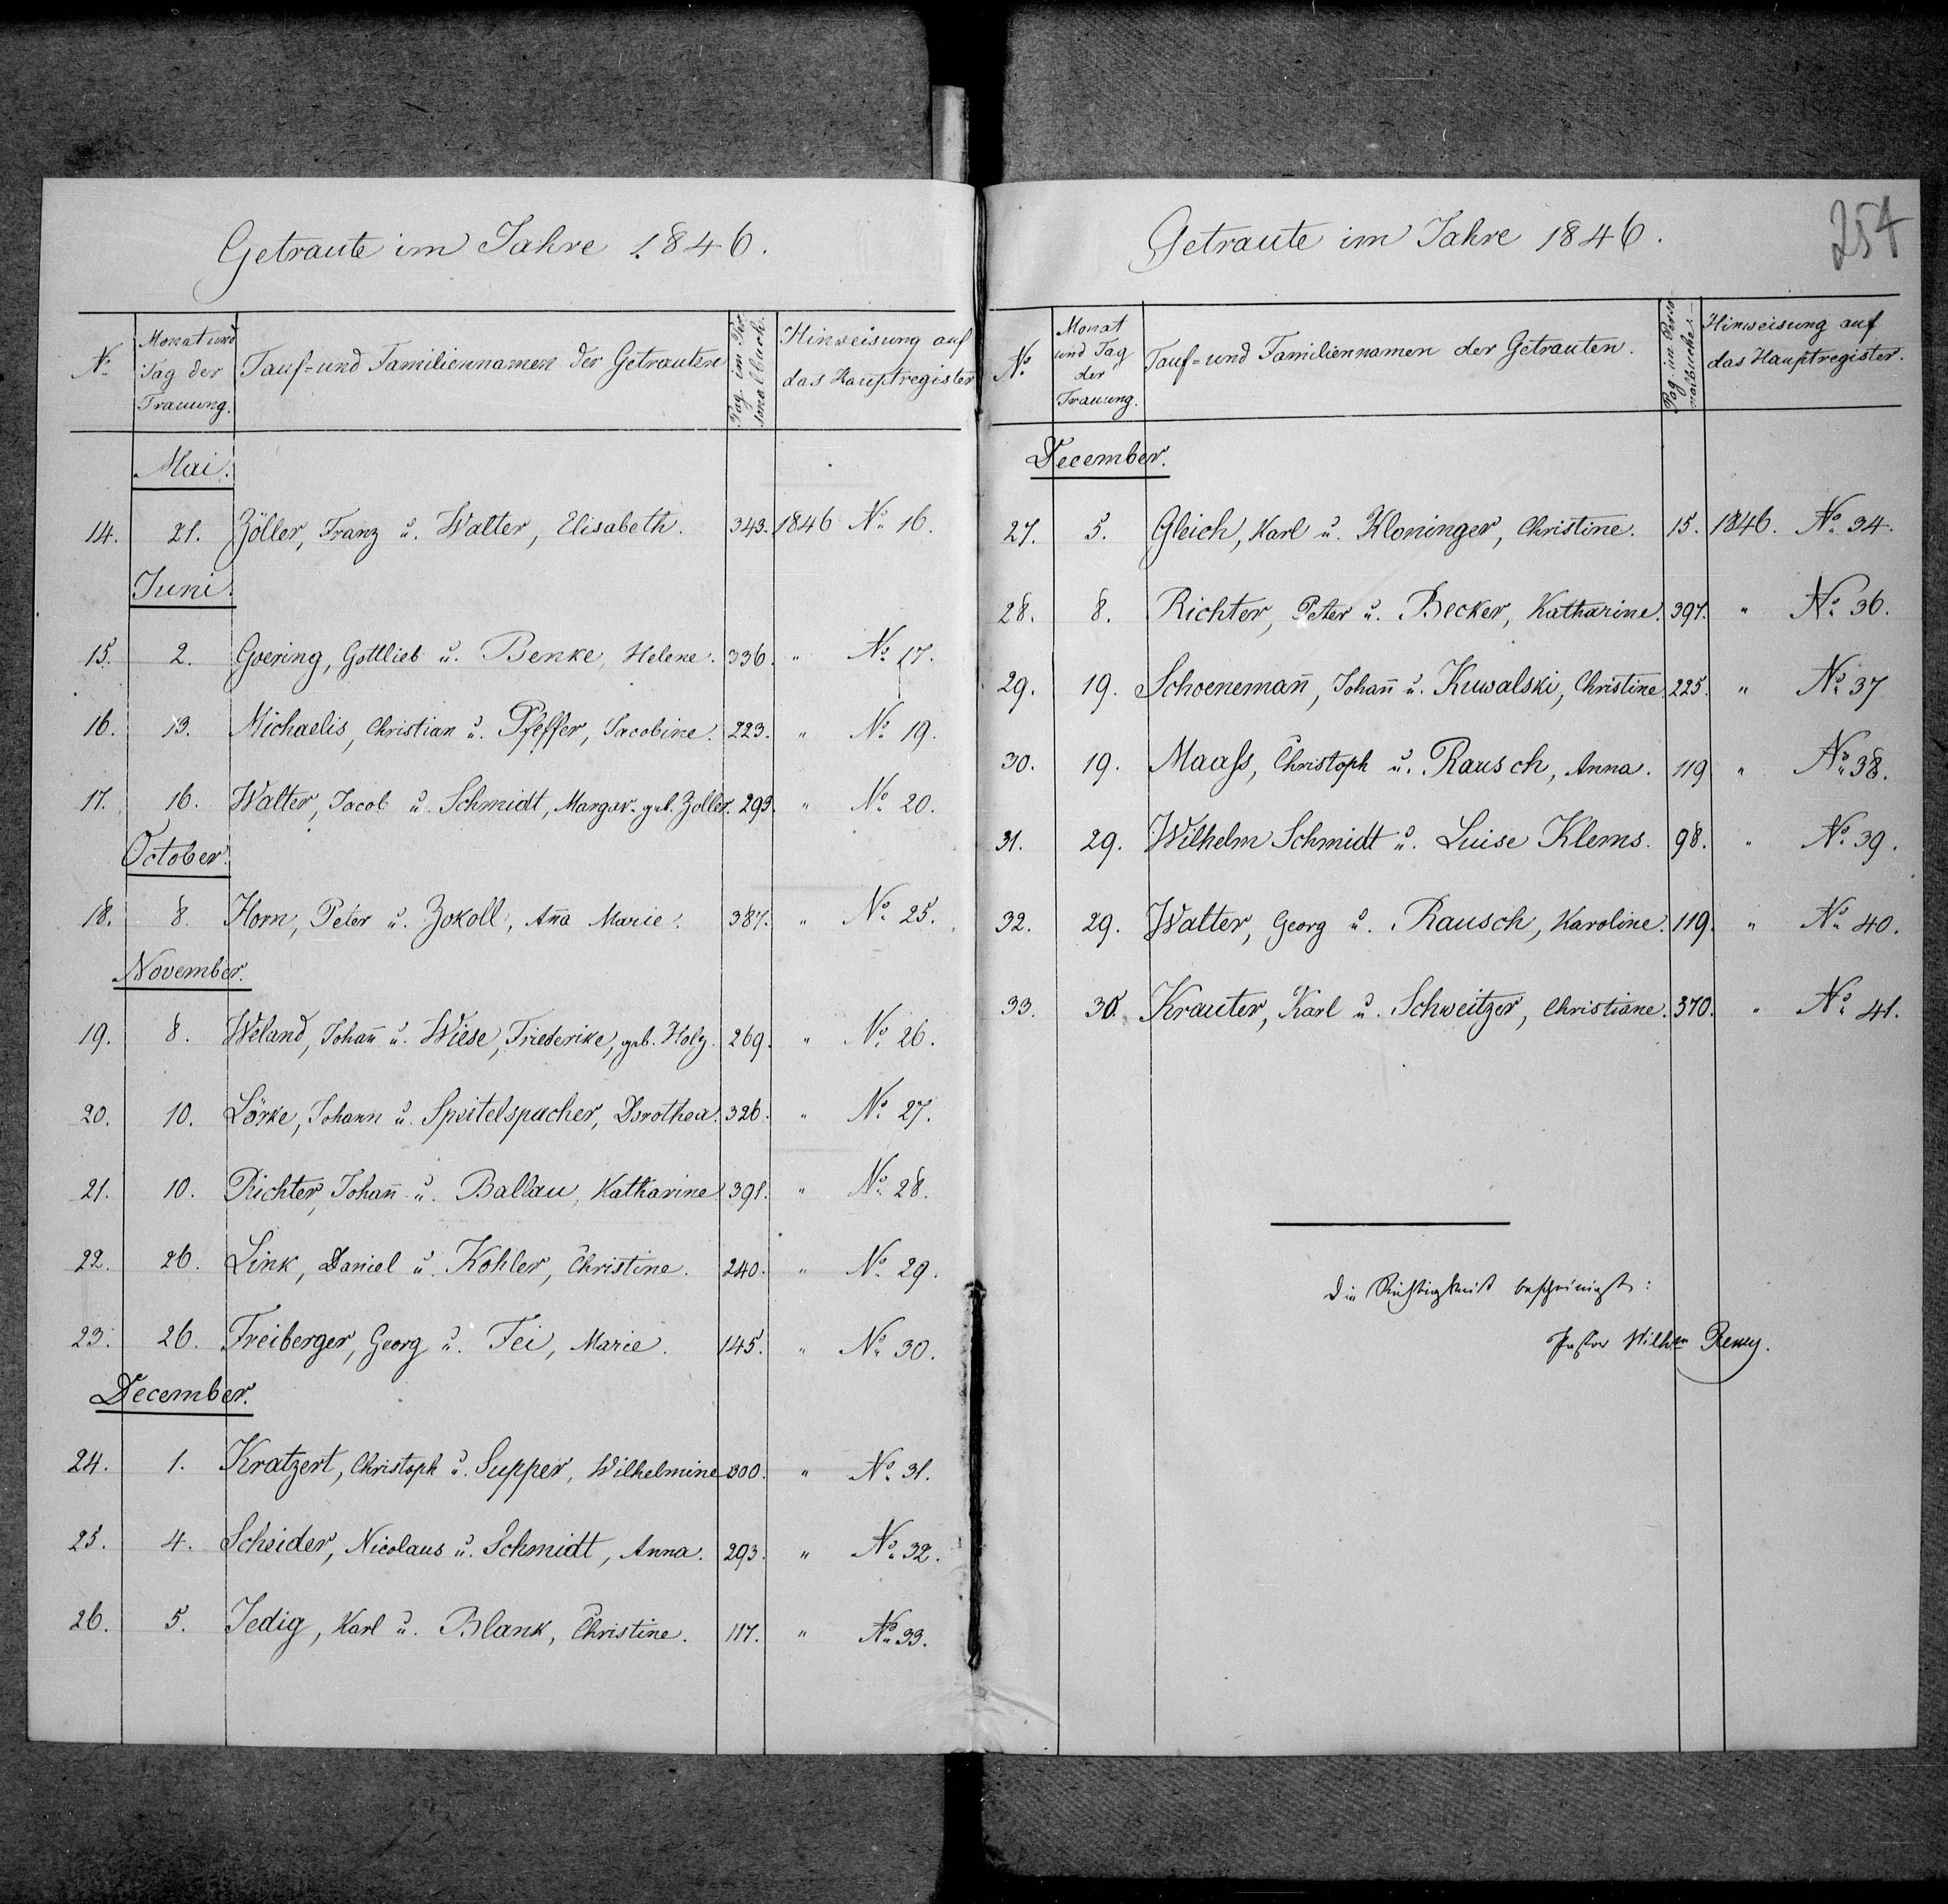 Getraute im Jahre 1846.
No. Monat und Tag der Trauung. Tauf- und Familiennamen der Getrauten Pag. im Personalbuch. Hinweisung auf das Hauptregister
Mai.
14. 21. Zöller, Franz u. Walter, Elisabeth. 343. 1846 No. 16.
Juni.
15. 2. Goering, Gottlieb u. Benke, Helene. 336. " No. 17.
16. 13. Michaelis, Christian u. Pfeffer, Jacobine. 223. " No. 19.
17. 16. Walter, Jacob u. Schmidt, Margar. geb. Zoller. 293. " No. 20.
October.
18. 8. Horn, Peter u. Zokoll, Aña Marie. 387. " No. 25.
November.
19. 8. Weland, Johañ u. Wiese, Friederike, geb. Holz. 269. " No. 26.
20. 10. Lörke, Johann u. Speitelspacher, Dorothea. 326. " No. 27.
21. 10. Richter, Johañ u. Ballau, Katharine 391. " No. 28.
22. 26. Link, Daniel u. Kohler, Christine. 240. " No. 29.
23. 26. Freiberger, Georg u. Fei, Marie. 145. " No. 30.
December.
24. 1. Kratzert, Christoph u. Supper, Wilhelmine 300. " No. 31.
25. 4. Scheider, Nicolaus u. Schmidt, Anna. 293. " No. 32.
26. 5. Jedig, Karl u. Blank, Christine. 117. " No. 33.
254
Getraute im Jahre 1846.
No. Monat und Tag der Trauung. Tauf- und Familiennamen der Getrauten. Pag. im Personalbuches Hinweisung auf das Hauptregister.
December.
27. 5. Gleich, Karl u. Kloninger, Christine. 15. 1846. No. 34.
28. 8. Richter, Peter u. Becker, Katharine. 397. " No. 36.
29. 19. Schoenemañ, Johañ u. Kuwalski, Christine 225. " No. 37
30. 19. Maaſs, Christoph u. Rausch, Anna. 119 " No. 38.
31. 29. Wilhelm Schmidt u. Luise Klems. 98. " No. 39.
32. 29. Walter, Georg u. Rausch, Karoline. 119. " No. 40.
33. 30. Krauter, Karl u. Schweitzer, Christiane. 370. " No. 41.
Die Richtigkeit bescheinigt:
Pastor Wilhm Remy.